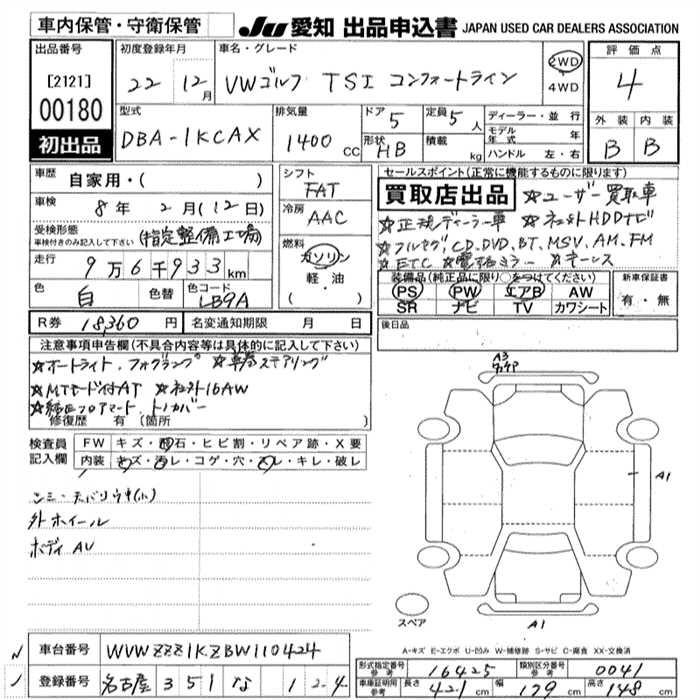 車内保管・守衛保管
JU 愛知 出品申込書 JAPAN USED CAR DEALERS ASSOCIATION
出品番号
[2121]
00180
初出品
初度登録年月
22 12月
車名・グレード
VWゴルフ TSI コンフォートライン
2WD
4WD
評価点
4
外装 内装
B B
型式
DBA-1KCAX
排気量
1400 cc
ドア 5
形状 HB
定員 5人
積載 kg
ディーラー・並行
モデル年式 年
ハンドル 左・右
車歴 自家用・( )
車検 8年 2月(12日)
受検形態
車検付きのみ記入して下さい
(指定整備工場)
走行 9万6千933km
色 白 色替 色コード LB9A
シフト
FAT
冷房
AAC
燃料
ガソリン
軽油
セールスポイント(正常に機能するものに限ります)
買取店出品 ☆ユーザー買取車
☆正規ディーラー車 ☆社外HDDナビ
☆フルセグ CD、DVD、BT、MSV、AM、FM
☆ETC ☆電格ミラー ☆キーレス
装備品(純正品に限り○をつけてください)
PS PW エアB AW
SR ナビ TV カワシート
新車保証書
有・無
後日品
R券 18,360円 名変通知期限 月 日
注意事項申告欄(不具合内容等は具体的に記入して下さい)
☆オートライト、フォグランプ ☆革巻ステアリング
☆MTモード付AT ☆社外16AW
☆純正フロアマート、トノカバー
修復歴 有 (箇所
検査員
記入欄
FW キズ・飛石・ヒビ割・リペア跡・X要
内装 キズ・汚レ・コゲ・穴・スレ・キレ・破レ
シミ・天バリウキ(小)
外ホイール
ボディAU
A3
A1
A1
スペア
A=キズ E=エクボ U=凹み W=補修跡 S=サビ C=腐食 XX=交換済
車台番号 WVWZZZ1KZBW110424
登録番号 名古屋 351 な 12-4
形式指定番号
参考
16425
類別区分番号
参考
0041
車庫証明用
参考
長さ 421 cm 幅 179 cm 高さ 148 cm